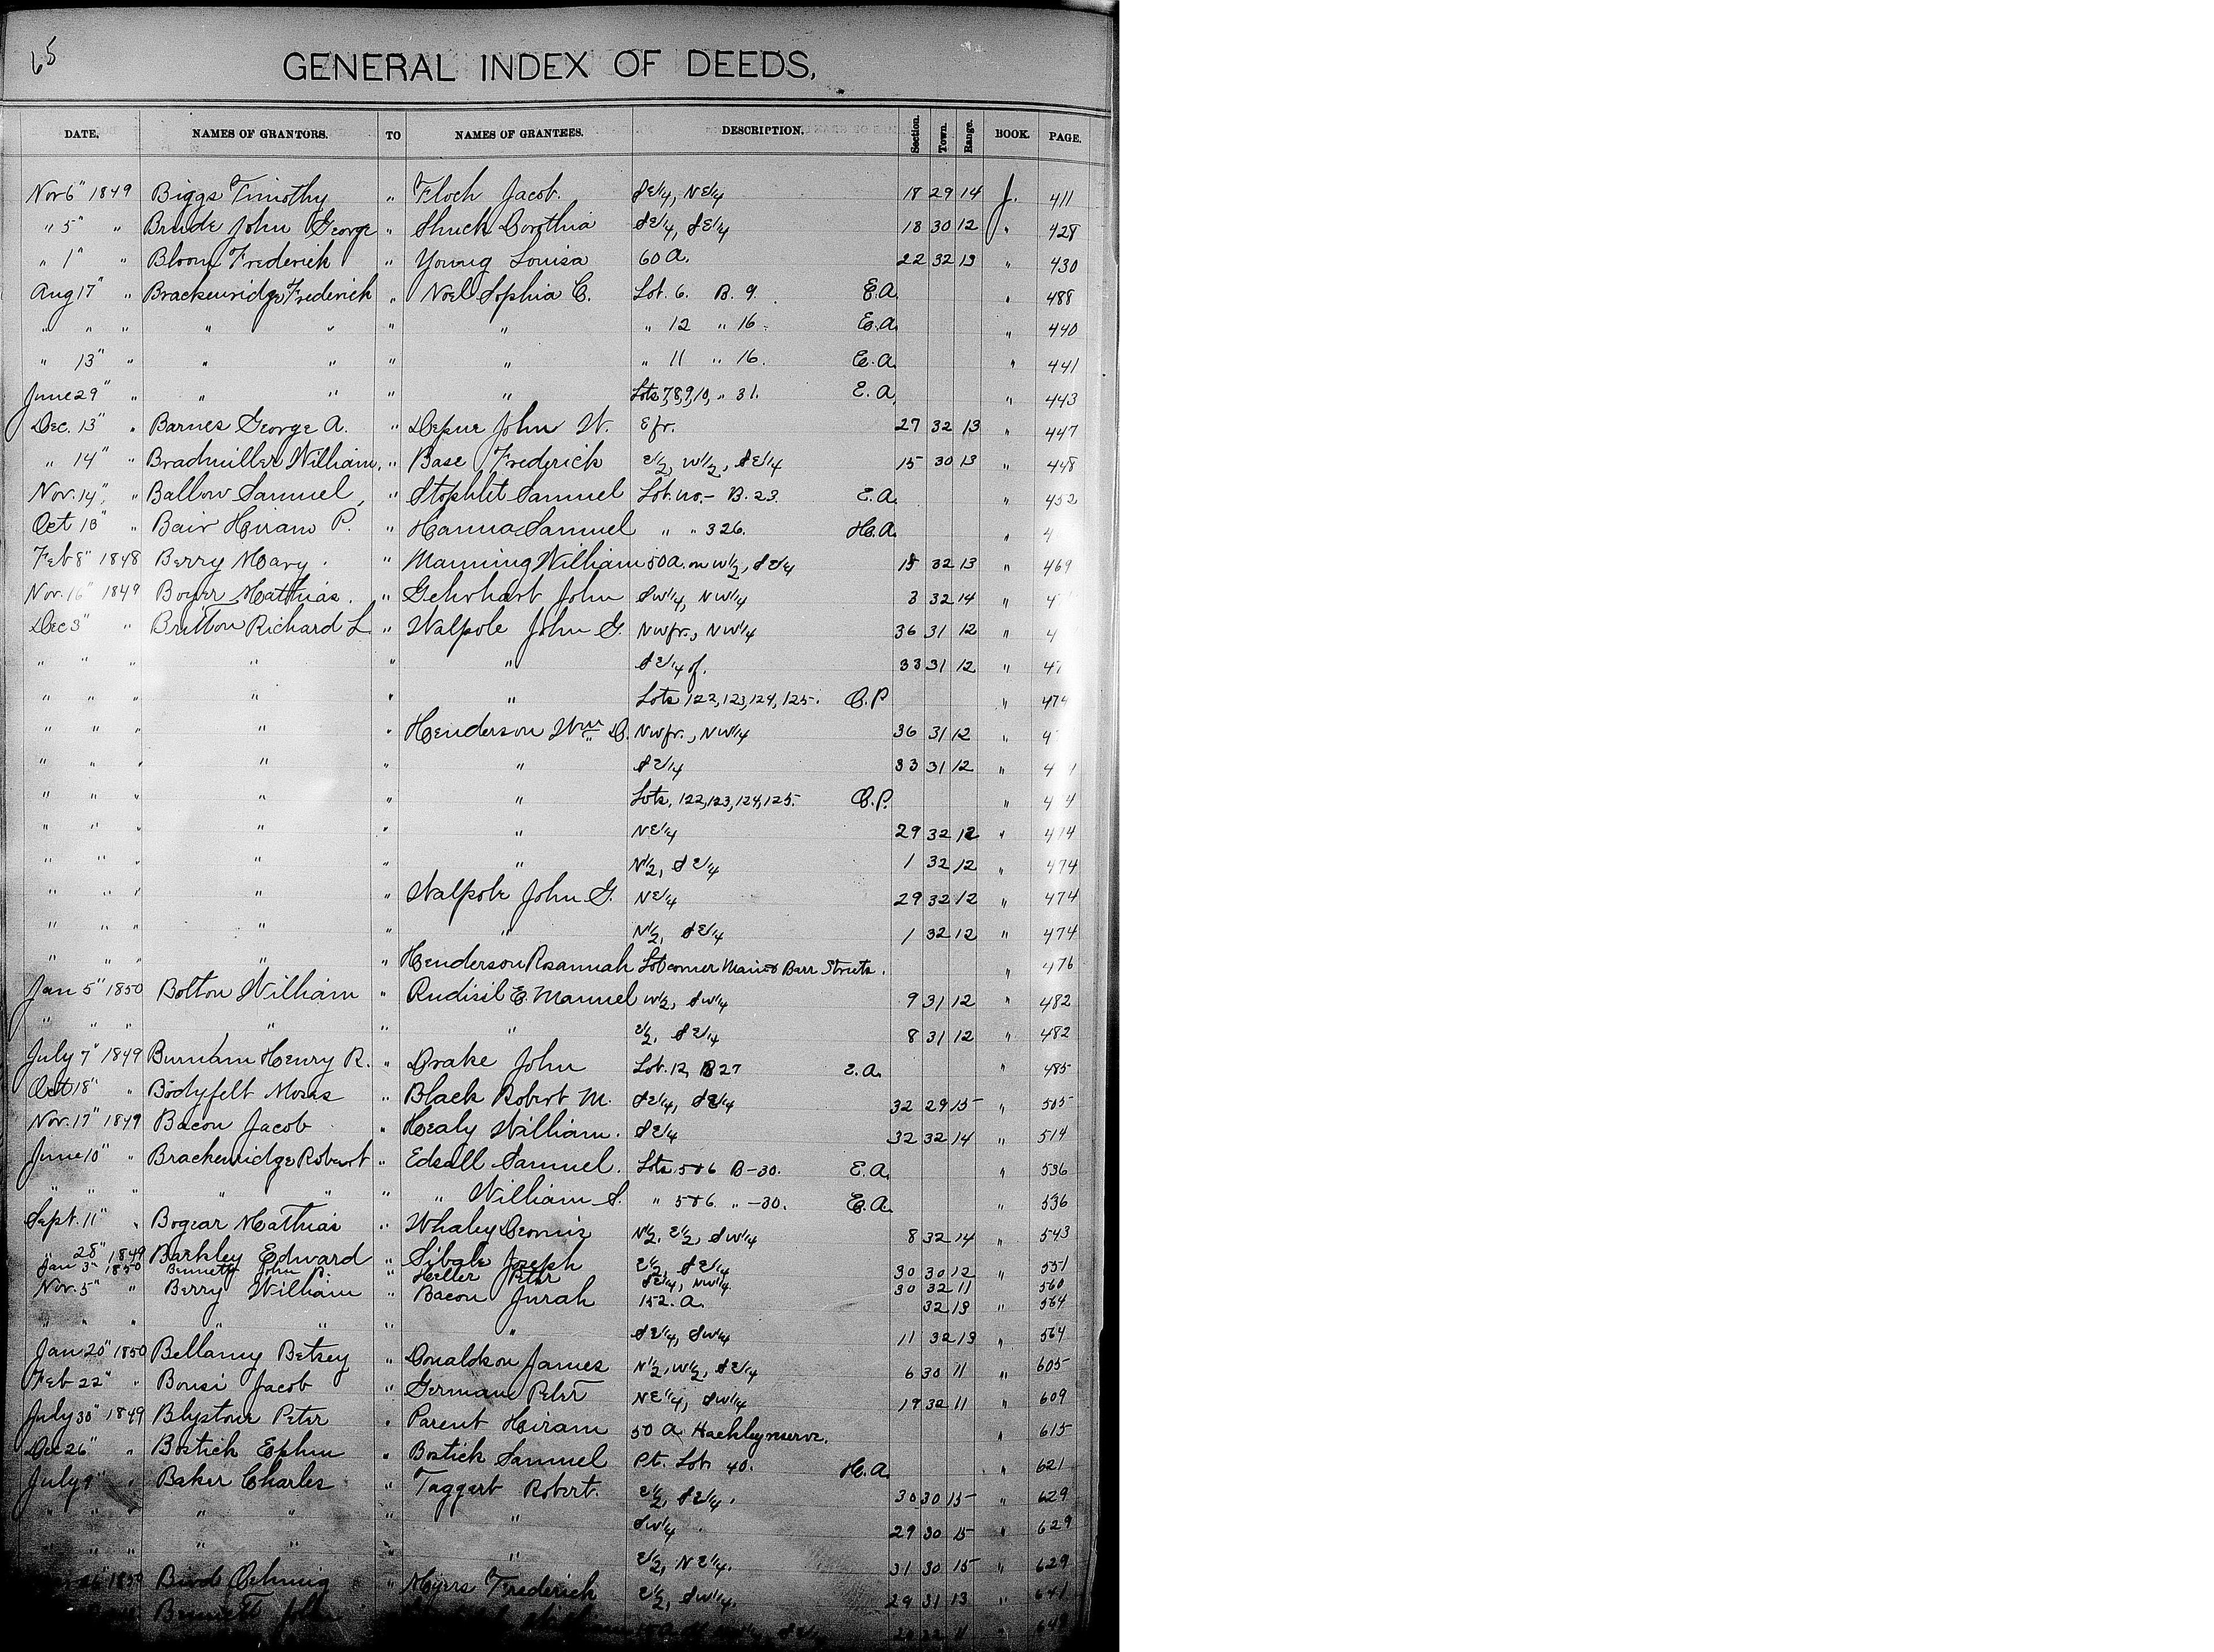 65
GENERAL INDEX OF DEEDS.
DATE. NAMES OF GRANTORS. TO NAMES OF GRANTEES. DESCRIPTION. Section. Town. Range. BOOK. PAGE.
Nov 6" 1849 Biggs Timothy " Floch Jacob. SE1/4, NE1/4 18 29 14 J. 411
" 5" " Brude John George " Shuck Dorothia SE1/4, SE1/4 18 30 12 " 428
" 1" " Bloom Frederick " Young Louisa 60 A. 22 32 13 " 430
Aug 17" " Brackenridge Frederick " Noel Sophia C. Lot. 6. B. 9. E.A. " 488
" " " " " " " " 12 " 16. E.A. " 440
" 13" " " " " " " 11 " 16. E.A. " 441
June 29" " " " " " Lots 7,8,9,10, " 31. E.A. " 443
Dec. 13" " Barnes George A. " Depue John W. E fr. 27 32 13 " 447
" 14" " Bradmiller William, " Base Frederick E1/2, W1/2, SE1/4 15 30 13 " 448
Nov. 14", " Ballow Samuel, " Stophlet Samuel Lot. no.- B. 23. E.A. " 452
Oct 18" " Bair Hiram P. " Hanna Samuel " " 326. H.A. " 4
Feb 8" 1848 Berry Mary. " Manning William 50 A. on W1/2, SE1/4 15 32 13 " 469
Nov. 16" 1849 Boyer Matthias. " Gehrhart John SW1/4, NW1/4 3 32 14 " 4
Dec 3" " Britton Richard L. " Walpole John G. NW fr., NW1/4 36 31 12 " 4
" " " " " " SE1/4 of. 33 31 12 " 47
" " " " " " Lots 122, 123, 124, 125. C.P. " 474
" " " " " Henderson Wm D. NW fr., NW1/4 36 31 12 " 4
" " " " " " SE1/4 33 31 12 " 4 1
" " " " " " Lots, 122, 123, 124, 125. C.P. " 4 4
" " " " " " NE1/4 29 32 12 " 474
" " " " " " N1/2, SE1/4 1 32 12 " 474
" " " " " Walpole John G. NE1/4 29 32 12 " 474
" " " " " " N1/2, SE1/4 1 32 12 " 474
" " " " " Henderson Rosannah Lot corner Main & Barr Streets. " 476
Jan 5" 1850 Bolton William " Rudisil E. Manuel W1/2, SW1/4 9 31 12 " 482
" " " " " " E1/2, SE1/4 8 31 12 " 482
July 7" 1849 Burnham Henry R. " Drake John Lot. 12, B 27 E.A. " 485
Oct 18" " Bodyfelt Moses " Black Robert M. SE1/4, SE1/4 32 29 15 " 505
Nov. 17" 1849 Bacon Jacob " Healy William. SE1/4 32 32 14 " 514
June 10" " Brackenridge Robert " Edsall Samuel. Lots 5 & 6 B-30. E.A. " 536
" " " " " " " William S. " 5 & 6. " -30. E.A. " 536
Sept. 11" " Bogear Mathias " Whaley Dennis N1/2, E1/2, SW1/4 8 32 14 " 543
" 28" 1849 Barkley Edward " Sibale Joseph E1/2, SE1/4 30 30 12 " 551
Jan 3" 1850 Bennett John P. " Heller Peter SE1/4, NW1/4 30 32 11 560
Nov. 5" " Berry William " Bacon Jurah 152. A. 32 13 " 564
" " " " " " " SE1/4, SW1/4 11 32 13 " 564
Jan 20" 1850 Bellamy Betsey " Donaldson James N1/2, W1/2, SE1/4 6 30 11 " 605
Feb 22" " Bousi Jacob " German Peter NE1/4, SW1/4 19 32 11 " 609
July 30" 1849 Blystone Peter " Parent Hiram 50 A Hackley reserve. " 615
Dec 26" " Bostick Ephm " Bostick Samuel Pt. Lot 40. H.A. " 621
July 9" " Baker Charles " Taggart Robert. E1/2, SE1/4. 30 30 15 " 629
" " " " " " " SW1/4. 29 30 15 " 629
" " " " " " " E1/2, NE1/4. 31 30 15 " 629
26" 1850 Bird Ochmig " Myers Frederick E1/2, SW1/4. 29 31 13 " 641
Bennett John